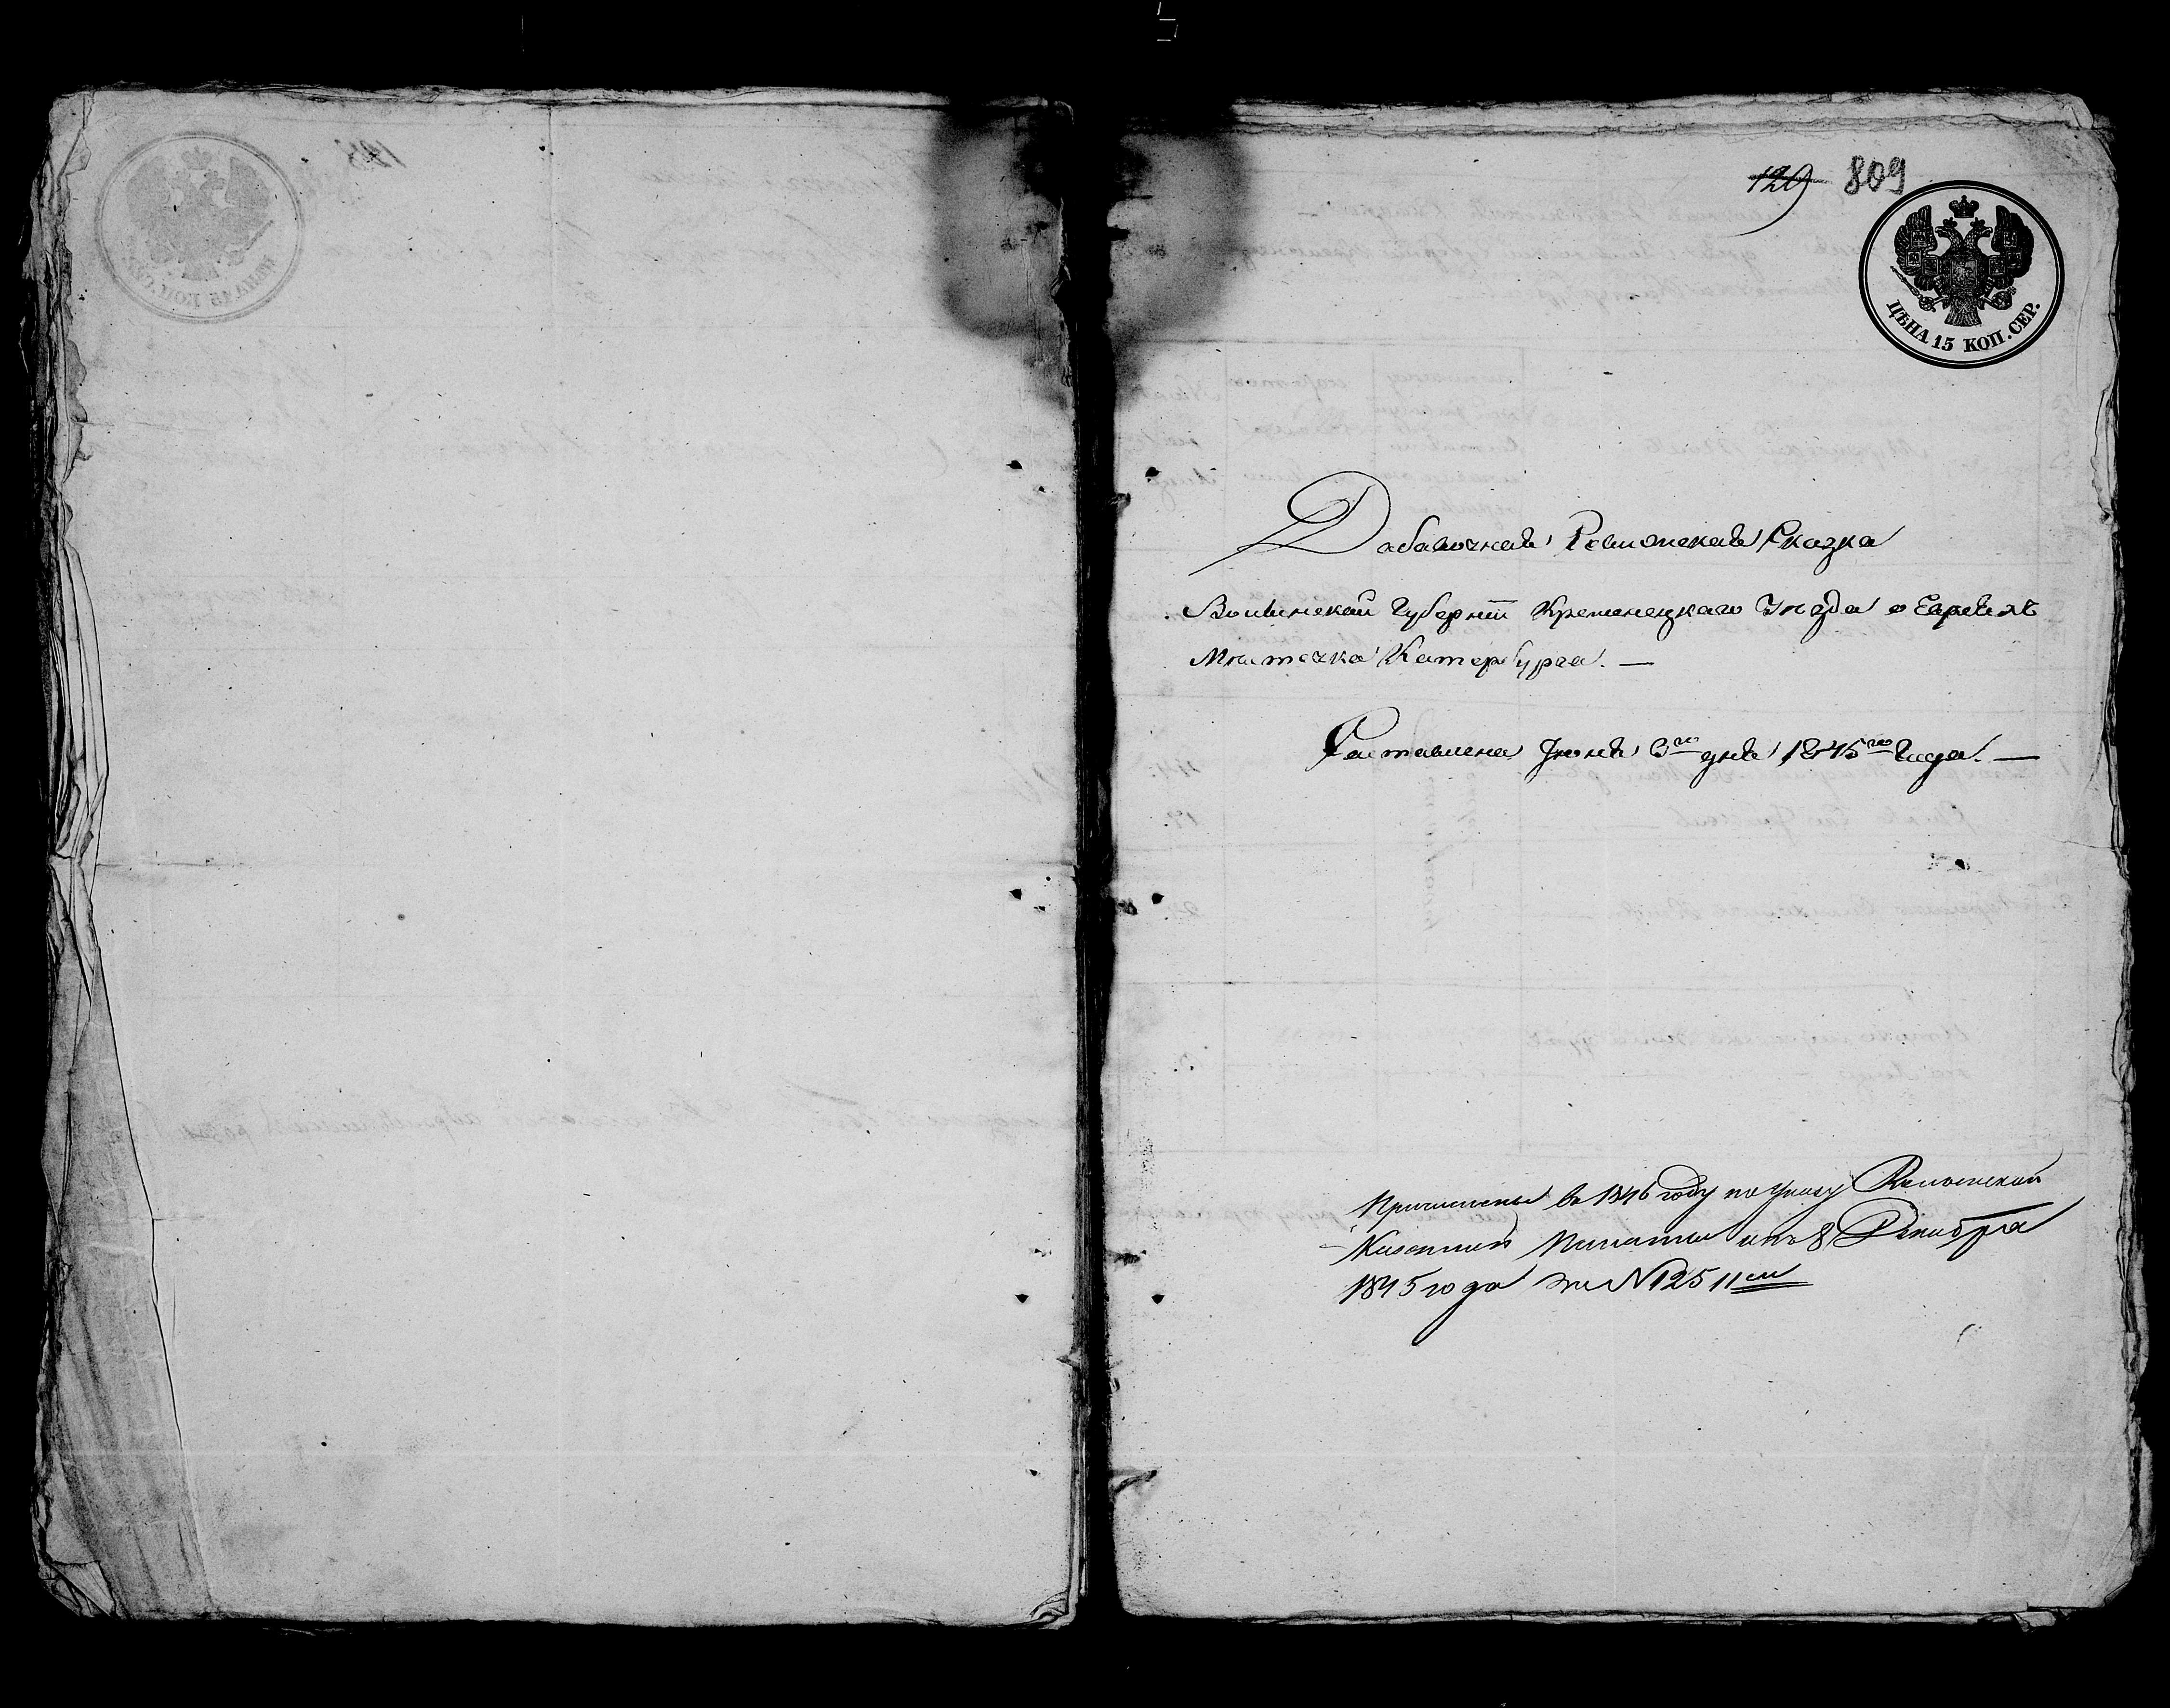 129 809
ЦѢНА 15 КОП. СЕР.
Добавочная Ревизская Сказка
Волынской Губернiи Кременецкаго Уѣзда о Евреяхъ
Мѣстечка Катербурга. —
Составлена Iюня 3го дня 1845го Года. —
Причислены въ 1846 году по Указу
Казенной Палаты отъ 8 Декабря
1845 года за N 12511ем